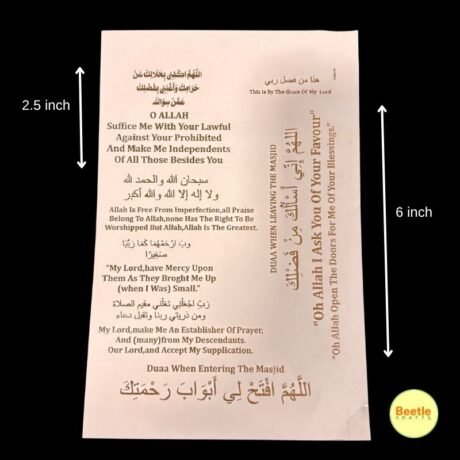 2.5 inch
اللهم اكفني بحلالك عن
حرامك وأغنني بفضلك
عمن سواك
O ALLAH
Suffice Me With Your Lawful
Against Your Prohibited
And Make Me Independents
Of All Those Besides You
سبحان الله والحمد لله
ولا إله إلا الله والله أكبر
Allah Is Free From Imperfection,all Praise
Belong To Allah,none Has The Right To Be
Worshipped But Allah,Allah Is The Greatest.
وَبِّ ارْحَمْهُمَا كَمَا رَبَّيَا
صَغِيرًا
“My Lord,have Mercy Upon
Them As They Broght Me Up
(when I Was) Small.”
رَبِّ اجْعَلْنِي مقيم الصلاة
ومن ذريتي ربنا وتقبل دعاء
My Lord,make Me An Establisher Of Prayer,
And (many)from My Descendants.
Our Lord,and Accept My Supplication.
Duaa When Entering The Masjid
اللَّهُمَّ افْتَحْ لِي أَبْوَابَ رَحْمَتِكَ
هذا من فضل ربي
This Is By The Grace Of My Lord
DUAA WHEN LEAVING THE MASJID
اللَّهُمَّ إِنِّي أَسْأَلُكَ مِنْ فَضْلِكَ
“Oh Allah I Ask You Of Your Favour”
“Oh Allah Open The Doors For Me Of Your Blessings.”
6 inch
Beetle
KRAFTS